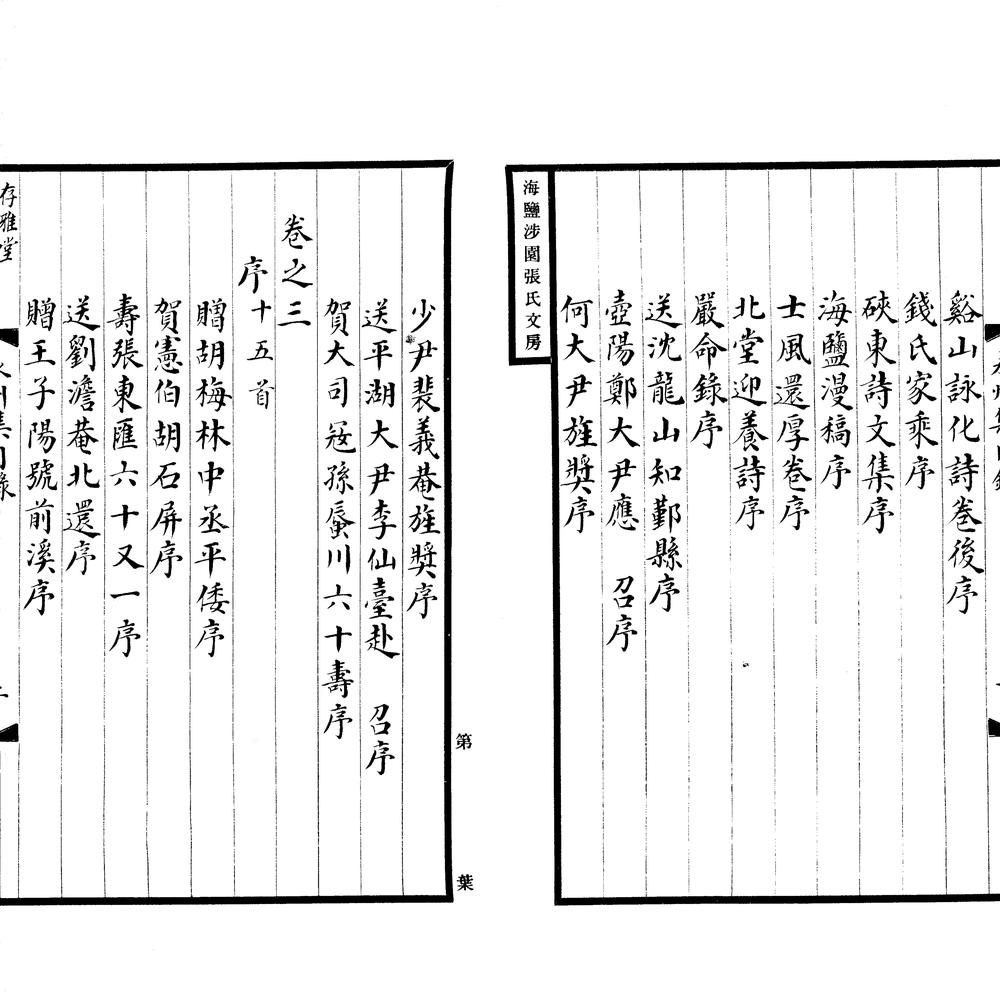 谿山詠化詩卷後序
錢氏家乘序
硤東詩文集序
海鹽漫稿序
士風還厚卷序
北堂迎養詩序
嚴命錄序
送沈龍山知鄞縣序
壺陽鄭大尹應 召序
何大尹旌奬序
海鹽涉園張氏文房
少尹裴義菴旌奬序
送平湖大尹李仙臺赴 召序
賀大司寇孫蜃川六十壽序
卷之三
序十五首
贈胡梅林中丞平倭序
賀憲伯胡石屏序
壽張東匯六十又一序
送劉澹菴北還序
贈王子陽號前溪序
存雅堂
第 葉